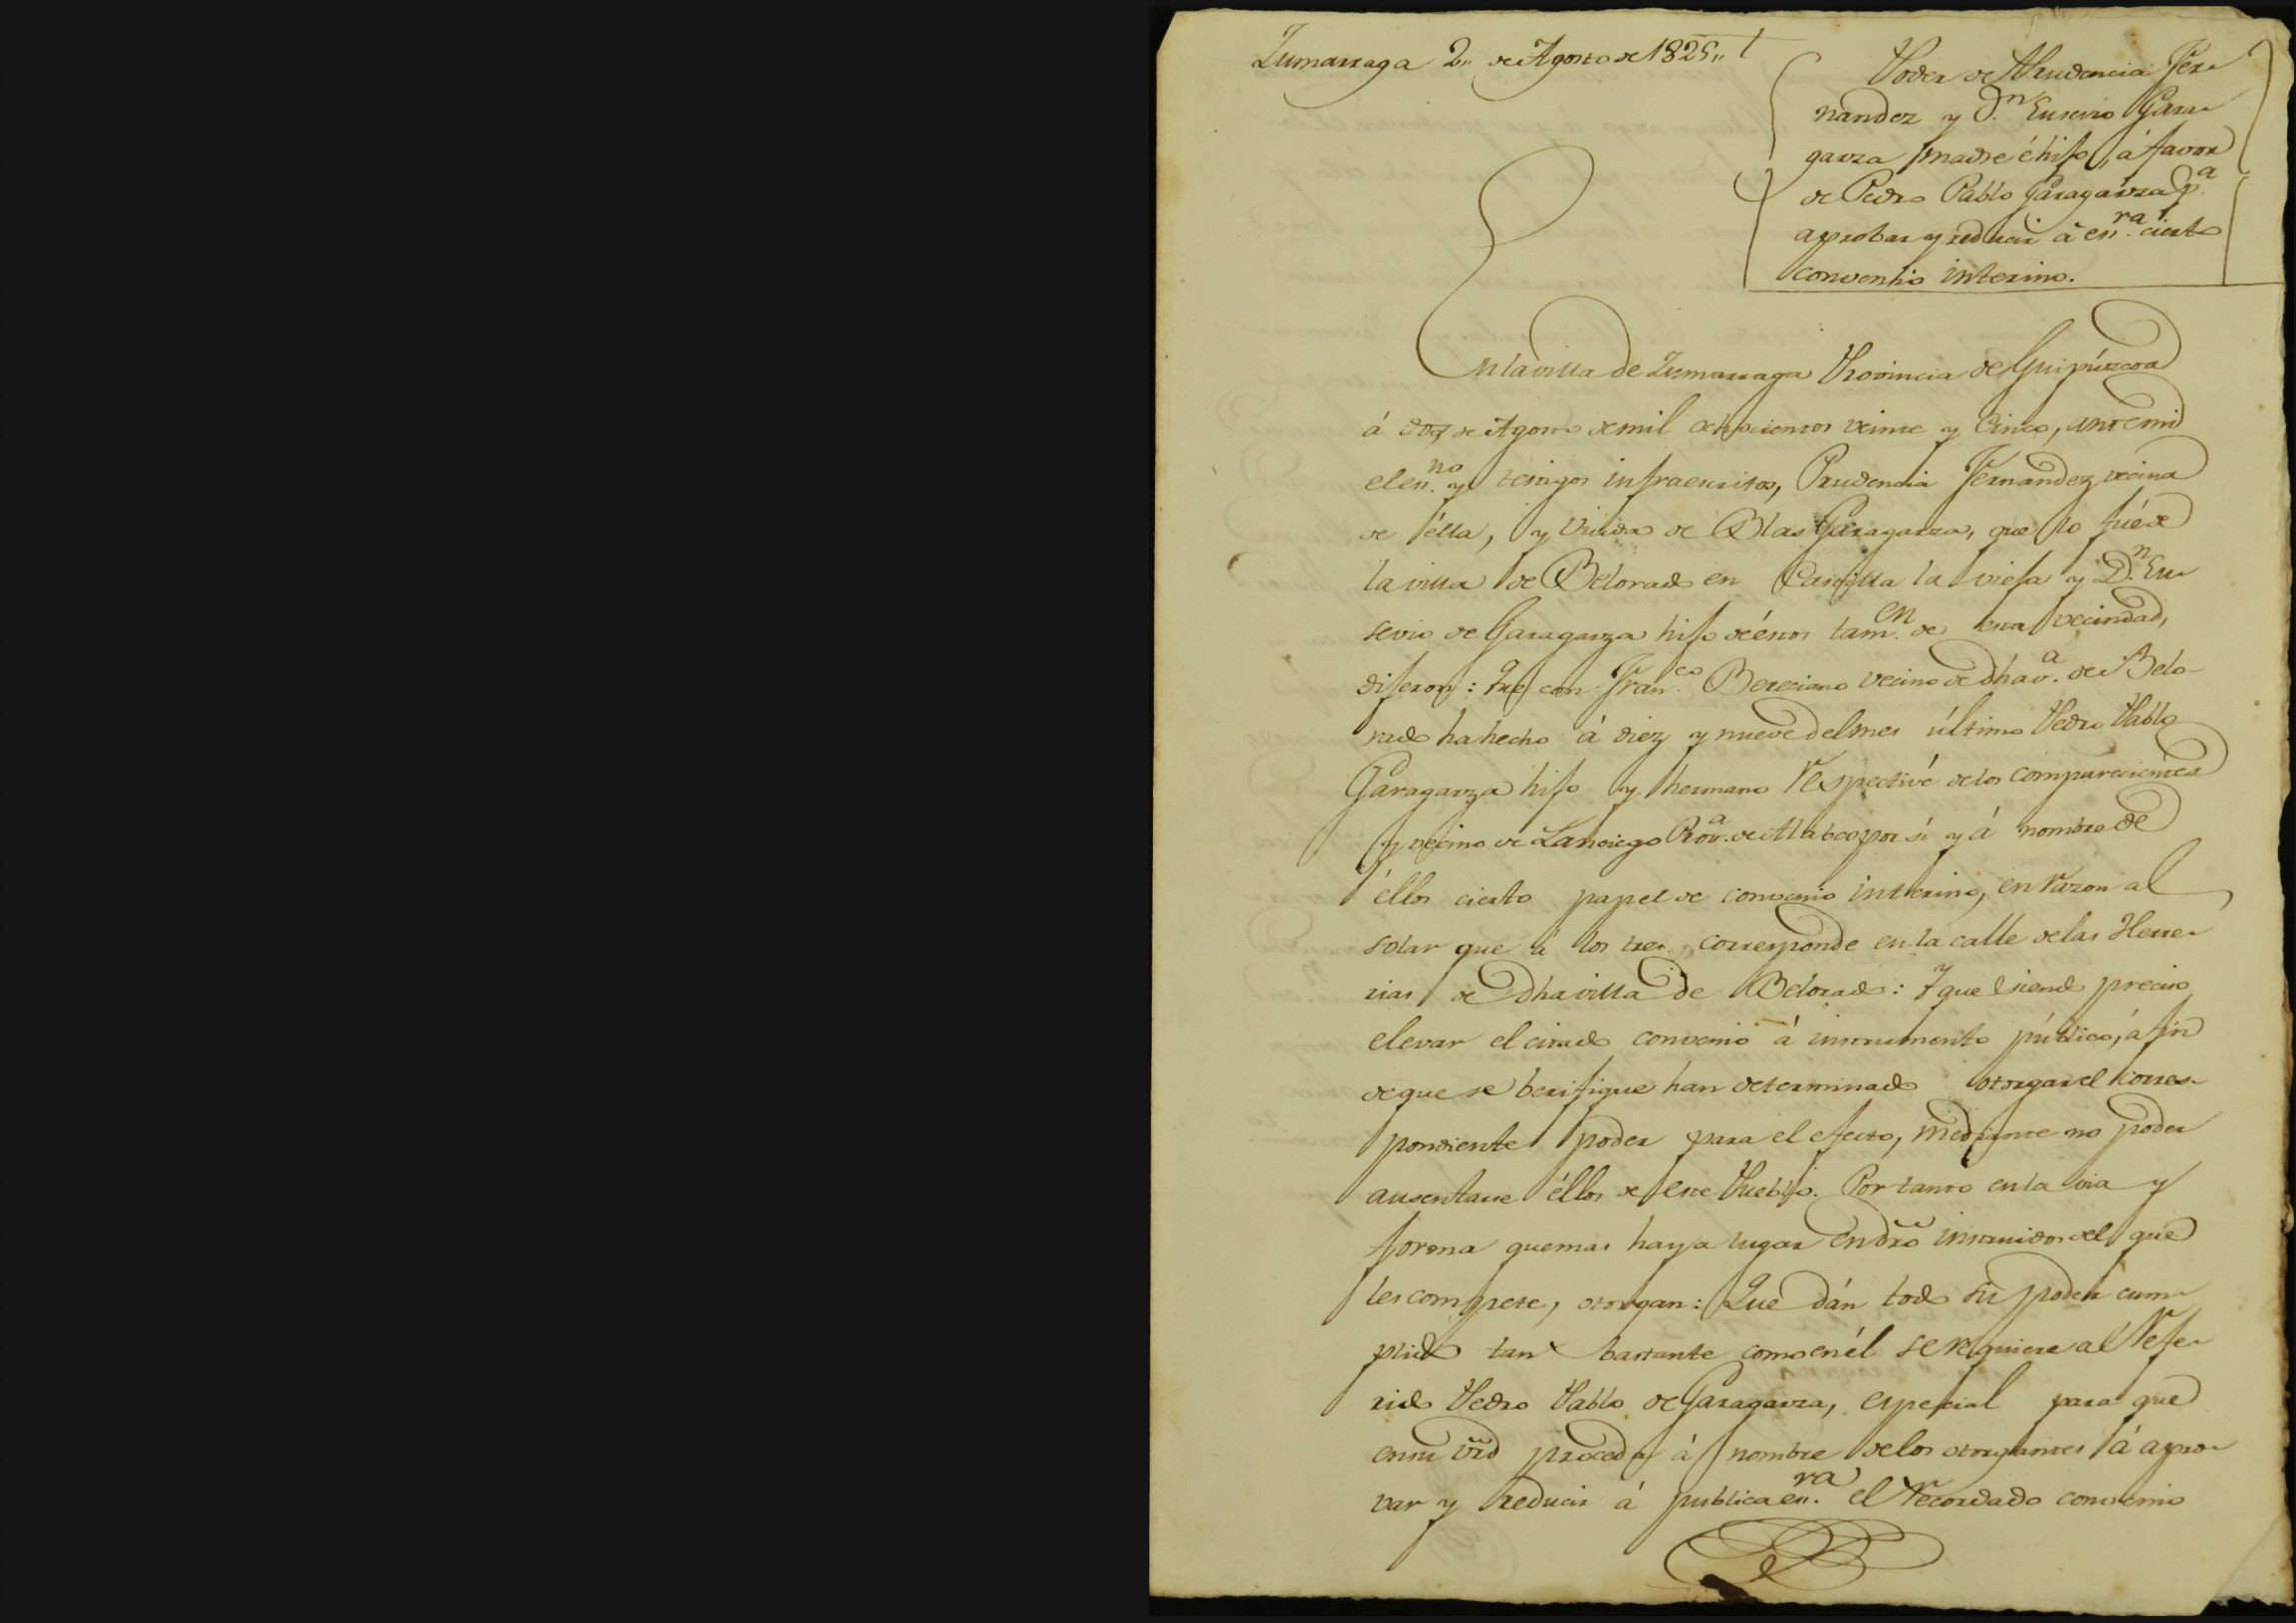 Zumarraga 2,, de Agosto de 1825,,
Poder de Prudencia Fer-
nandez y D.n Eusevio Gara-
garza madre é hijo, á favor
de Pedro Pablo Garagarza p.a
aprobar y reducir á es.ra cierto
convenio interino.
En la villa de Zumarraga Provincia de Guipúzcoa
á dos de Agosto de mil ochocientos veinte y Cinco, ante mi
el es.no y testigos infraescritos, Prudencia Fernandez vecina
de élla, y Viuda de Blas Garagarza, que lo fué de
la villa de Belorado en Castilla la vieja y D.n Eu-
sevio de Garagarza hijo de éstos tam.en de esta vecindad,
dijeron: Que con Fran.co Bereciano vecino de dha v.a de Belo-
rado ha hecho á diez y nueve del mes último Pedro Pablo
Garagarza hijo y hermano respectivé de los comparecientes
y vecino de Lanciego Prov.a de Alaba por sí y á nombre de
éllos cierto papel de convenio interino, en razon al
solar que á los tres corresponde en la calle de las Herre-
rias de dha villa de Belorado: Y que siendo preciso
elevar el citado convenio á instrumento público, á fin
de que se berifique han determinado otorgar el corres-
pondiente poder para el efecto, mediante no poder
ausentarse éllos de este Pueblo. Por tanto en la via y
forma que mas haya lugar en dro instruidos del que
les compete, otorgan: Que dán todo su poder cum-
plido tan bastante como en él se requiere al refe-
rido Pedro Pablo de Garagarza, especial para que
en su vrd proceda á nombre de los otorgantes á apro-
var y reducir á publica es.ra el recordado convenio